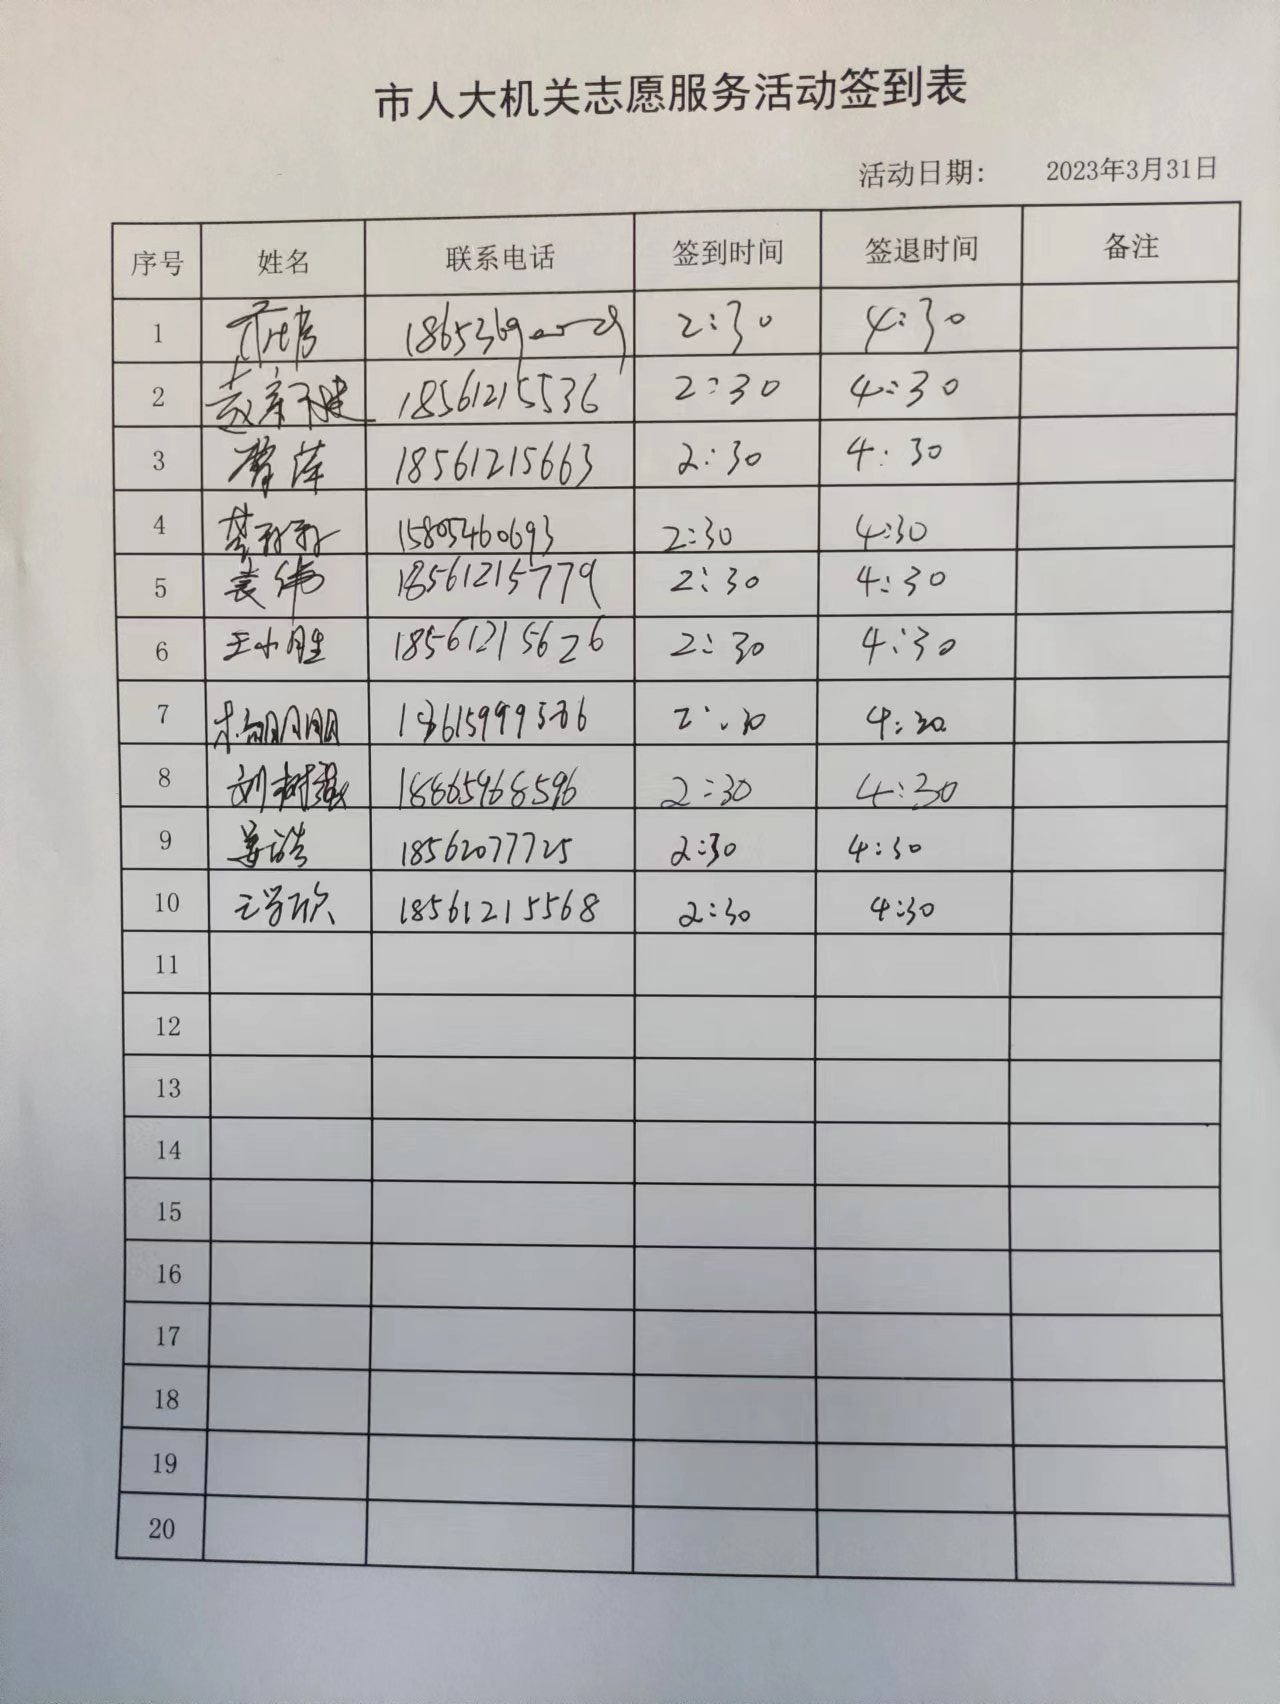 市人大机关志愿服务活动签到表
活动日期: 2023年3月31日
序号 姓名 联系电话 签到时间 签退时间 备注
1 2:30 4:30
2 18561215536 2:30 4:30
3 18561215663 2:30 4:30
4 15805460693 2:30 4:30
5 袁伟 18561215779 2:30 4:30
6 王小胜 18561215626 2:30 4:30
7 2:30 4:30
8 刘树强 18865968596 2:30 4:30
9 姜浩 18562077725 2:30 4:30
10 王学欣 18561215568 2:30 4:30
11
12
13
14
15
16
17
18
19
20